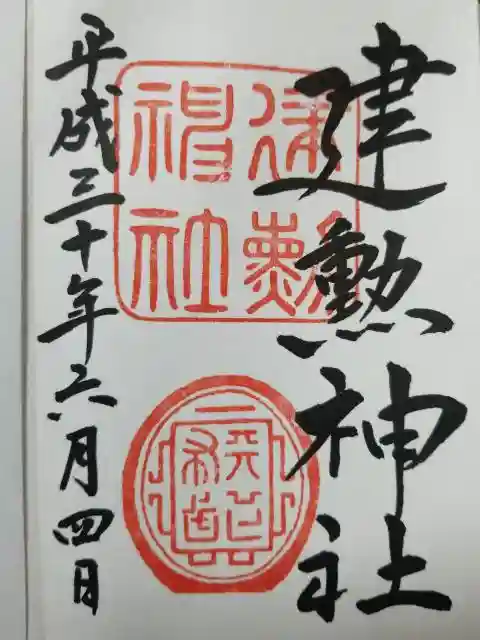 建勲神社
建勲
神社
平成三十年六月四日